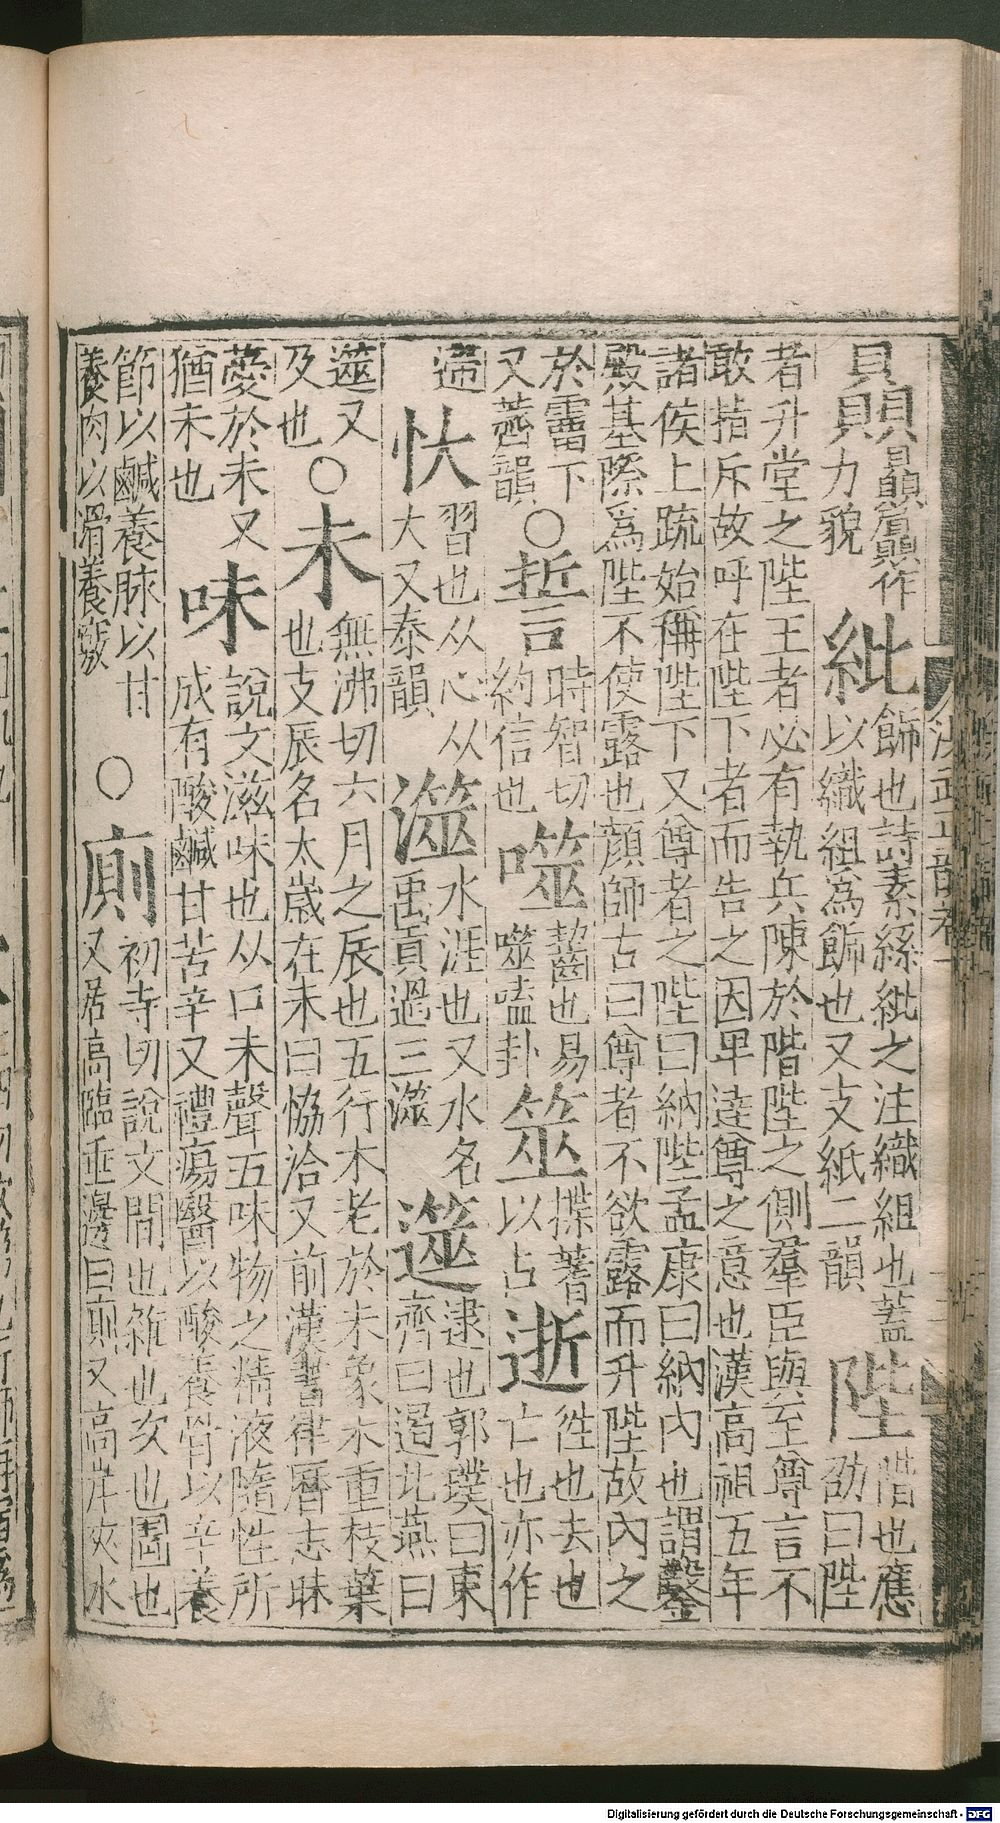 貝力貌
紕飾也詩素絲紕之注織組也蓋
以織組爲飾也又支紙二韻
陛階也應
劭曰陛
者升堂之陛王者必有執兵陳於階陛之側羣臣與至尊言不
敢指斥故呼在陛下者而告之因卑達尊之意也漢高祖五年
諸侯上疏始稱陛下又尊者之陛曰納陛孟康曰納內也謂鑿
殿基際爲陛不使露也顏師古曰尊者不欲露而升陛故內之
於霤下
又薺韻
○誓時智切
約信也
噬齧也易
噬嗑卦
筮揲蓍
以占
逝徃也去也
亡也亦作
忕習也从心从
大又泰韻
澨水涯也又水名
禹貢過三澨
遾逮也郭璞曰東
齊曰遏北燕曰
遾又
及也
○未無沸切六月之辰也五行木老於未象木重枝葉
也支辰名太歲在未曰恊洽又前漢書律曆志昧
薆於未又
猶未也
味說文滋味也从口未聲五味物之精液隨性所
成有酸鹹甘苦辛又禮瘍醫以酸養骨以辛養
節以鹹養脉以甘
養肉以滑養竅
○廁初寺切說文間也雜也次也圊也
又居高臨垂邊曰廁又高岸夾水
Digitalisierung gefördert durch die Deutsche Forschungsgemeinschaft - DFG